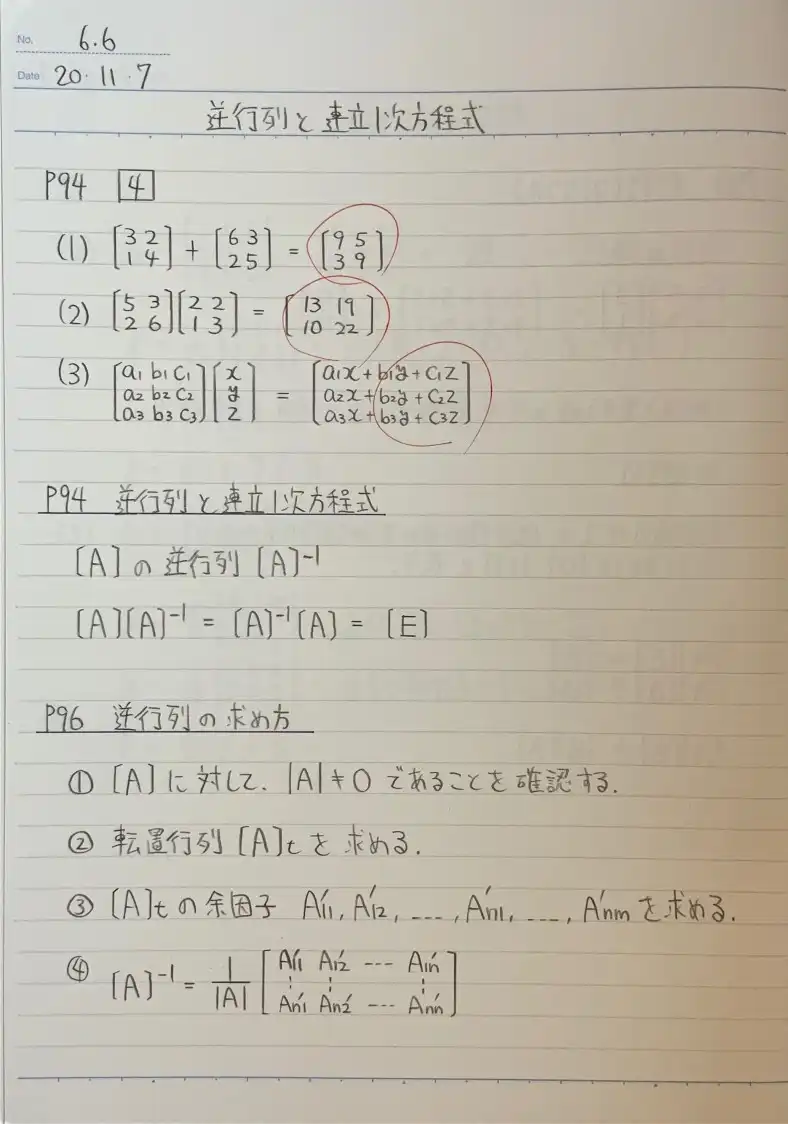 No. 6.6
Date 20・11・7
逆行列と連立1次方程式
P94 4
(1) [3 2 + [6 3 = [9 5
1 4] 2 5] 3 9]
(2) [5 3 [2 2 = [13 19
2 6] 1 3] 10 22]
(3) [a1 b1 c1 [x = [a1x + b1y + c1z
a2 b2 c2 y a2x + b2y + c2z
a3 b3 c3] z] a3x + b3y + c3z]
P94 逆行列と連立1次方程式
[A]の逆行列[A]⁻¹
[A][A]⁻¹ = [A]⁻¹[A] = [E]
P96 逆行列の求め方
① [A]に対して、|A|≠0であることを確認する.
② 転置行列[A]tを求める.
③ [A]tの余因子 A'11, A'12, ---, A'n1, ---, A'nmを求める.
④ [A]⁻¹ = 1/|A| [A'11 A'12 --- A'1n
⋮ ⋮ ⋮
A'n1 A'n2 --- A'nn]